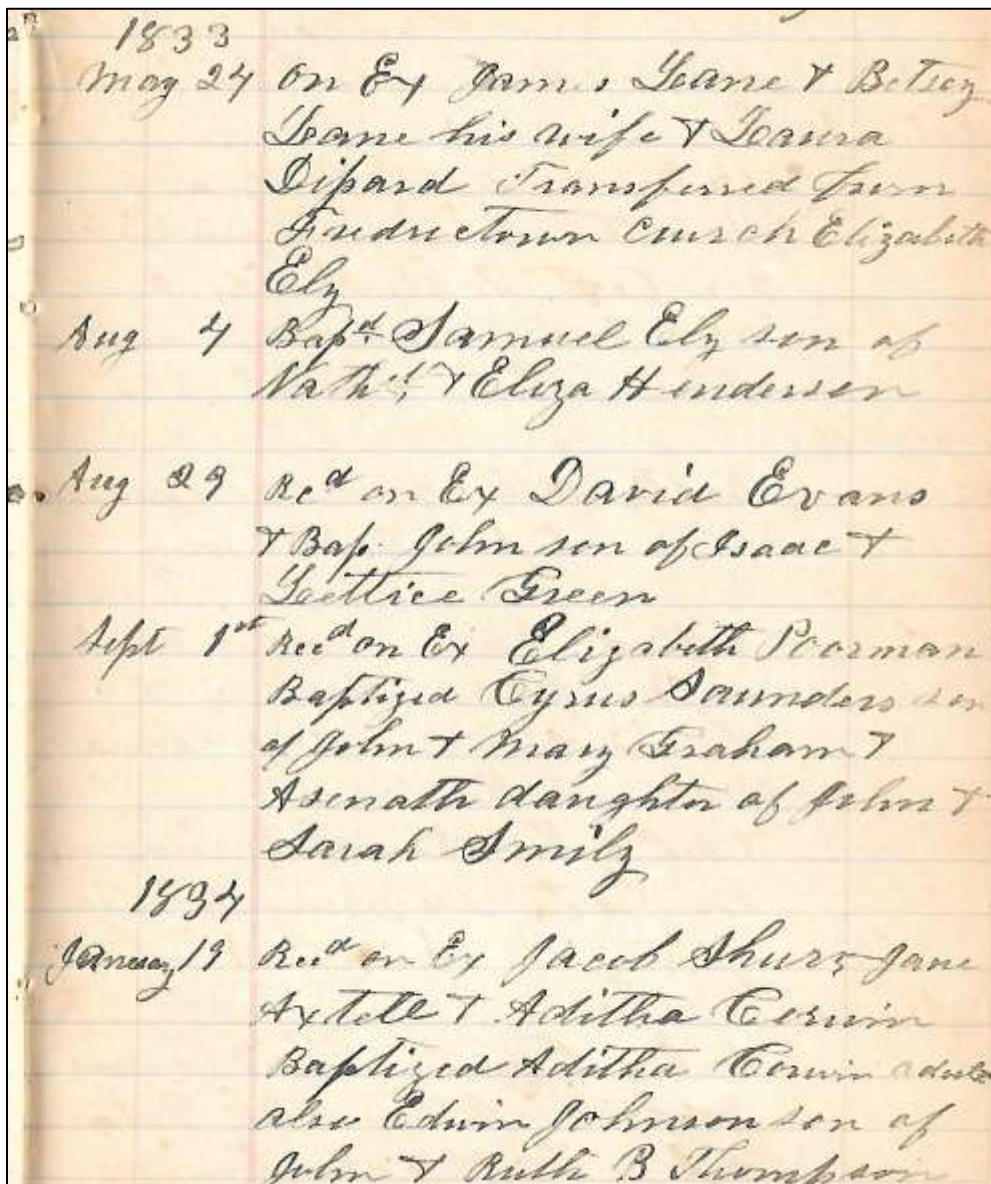 1833
May 24 on Ex James Leane & Betsey
Leane his wife & Laura
Disard Transferred from
Fredrictown Church Elizabeth
Ely
Aug 4 Bapd Samuel Ely son of
Nathl, & Eliza Henderson
Aug 29 Recd on Ex David Evans
& Bap. John son of Isaac &
Lettice Green
Sept 1st Recd on Ex Elizabeth Poorman
Baptized Cyrus Saunders son
of John & Mary Graham &
Asenath daughter of John &
Sarah Smily
1834
January 19 Recd on Ex Jacob Shurr Jane
Axtell & Aditha Corwin
Baptized Aditha Corwin adult
also Edwin Johnson son of
John & Ruth B Thompson